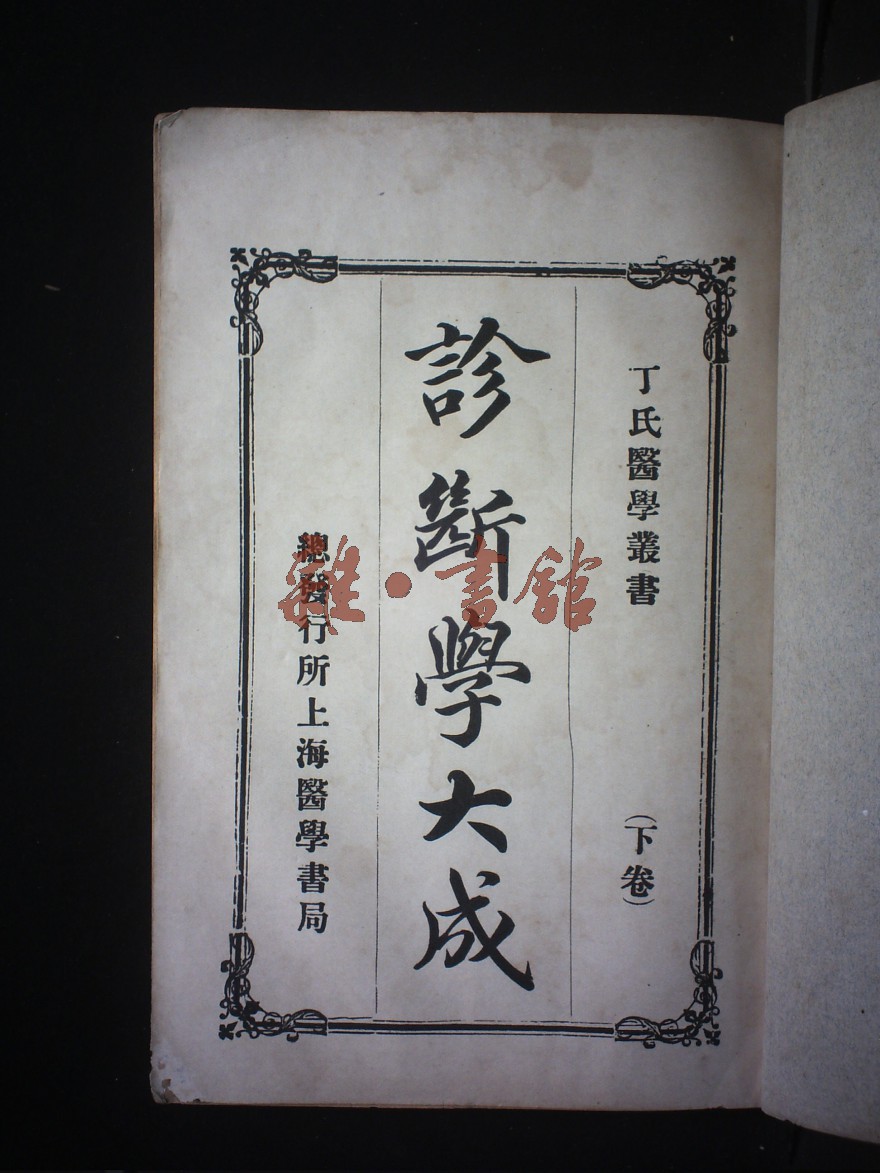 丁氏醫學叢書
(下卷)
診斷學大成
總發行所上海醫學書局
雜·書館